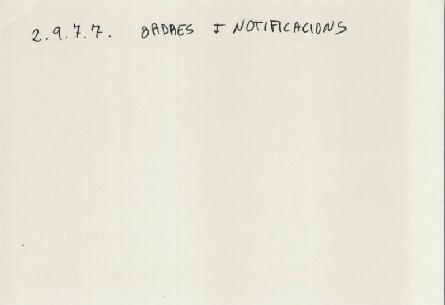 2.9.7.7. ORDRES I NOTIFICACIONS